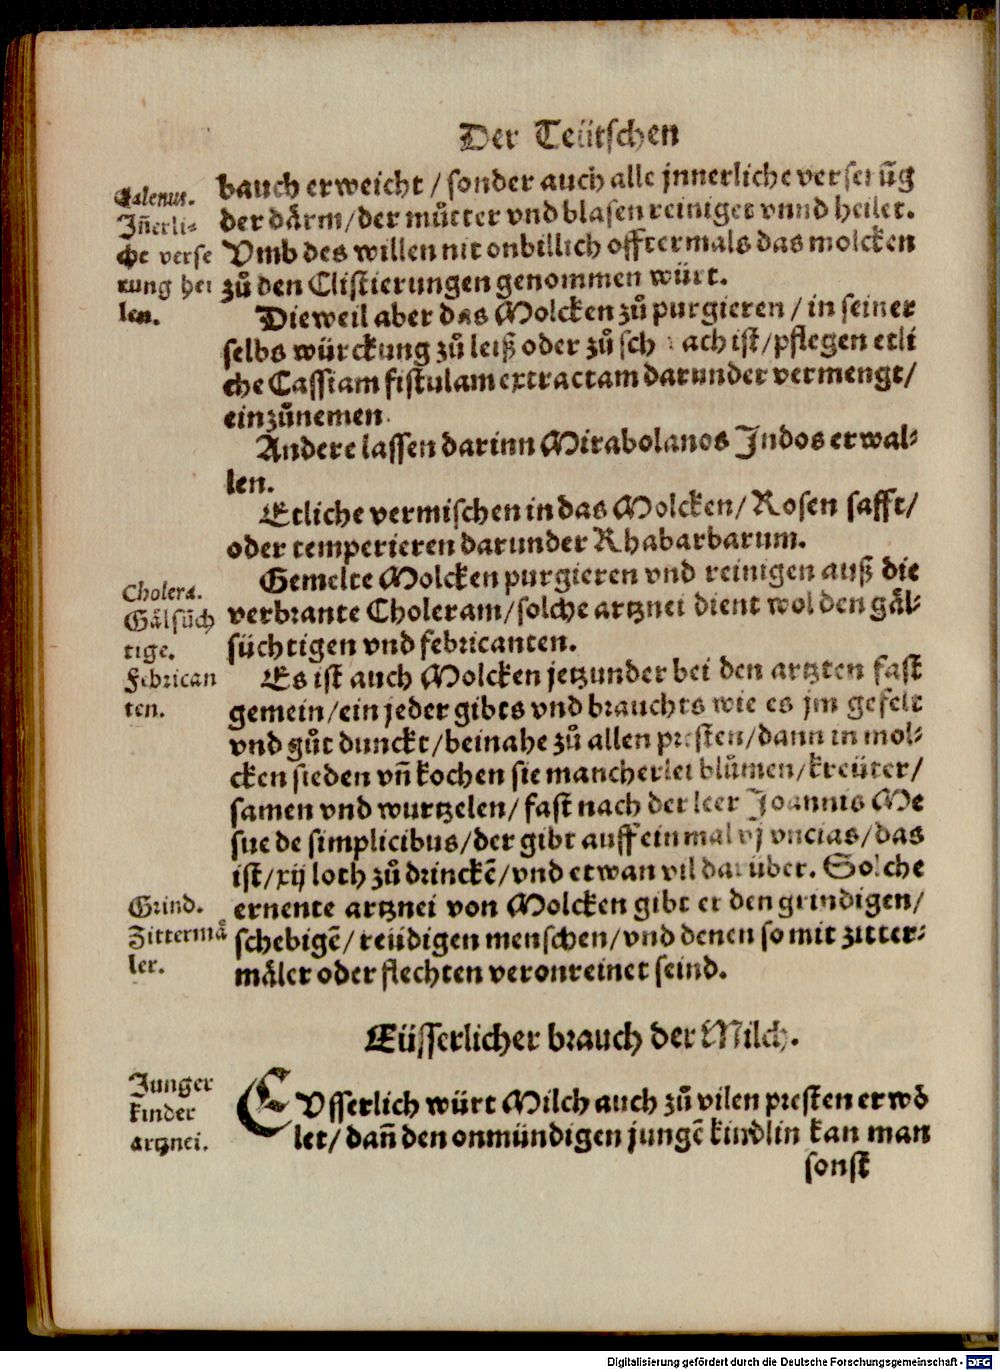 Der Teütschen
Galenus.
Jñerli⸗
che verse
rung hei
len.
bauch erweicht / sonder auch alle jnnerliche verserūg
der därm/der můtter vnd blasen reiniget vnnd heilet.
Vmb des willen nit onbillich offtermals das molcken
zů den Clistierungen genommen würt.
Dieweil aber das Molcken zů purgieren / in seiner
selbs würckung zů leiß oder zů schwach ist/pflegen etli
che Cassiam fistulam extractam darunder vermengt/
einzůnemen.
Andere lassen darinn Mirabolanos Jndos erwal⸗
len.
Etliche vermischen in das Molcken/ Rosen safft/
oder temperieren darunder Rhabarbarum.
Cholera.
Gälsüch
tige.
Febrican
ten.
Gemelte Molcken purgieren vnd reinigen auß die
verbrante Choleram/solche artznei dient wol den gäl⸗
süchtigen vnd febricanten.
Es ist auch Molcken jetzunder bei den artzten fast
gemein/ein jeder gibts vnd brauchts wie es jm gefelt
vnd gůt dunckt/beinahe zů allen presten/dann in mol⸗
cken sieden vñ kochen sie mancherlei blůmen/kreüter/
samen vnd wurtzelen/ fast nach der leer Joannis Me
sue de simplicibus/der gibt auff ein mal vj vncias/das
ist/xij loth zů drinckē/vnd etwan vil darüber. Solche
Grind.
Zittermä
ler.
ernente artznei von Molcken gibt er den grindigen/
schebigē/ reüdigen menschen/vnd denen so mit zitter⸗
mäler oder flechten veronreinet seind.
Eüsserlicher brauch der Milch.
Junger
kinder
artznei.
EVsserlich würt Milch auch zů vilen presten erwö
let/ dañ den onmündigen jungē kindlin kan man
sonst
Digitalisierung gefördert durch die Deutsche Forschungsgemeinschaft - DFG